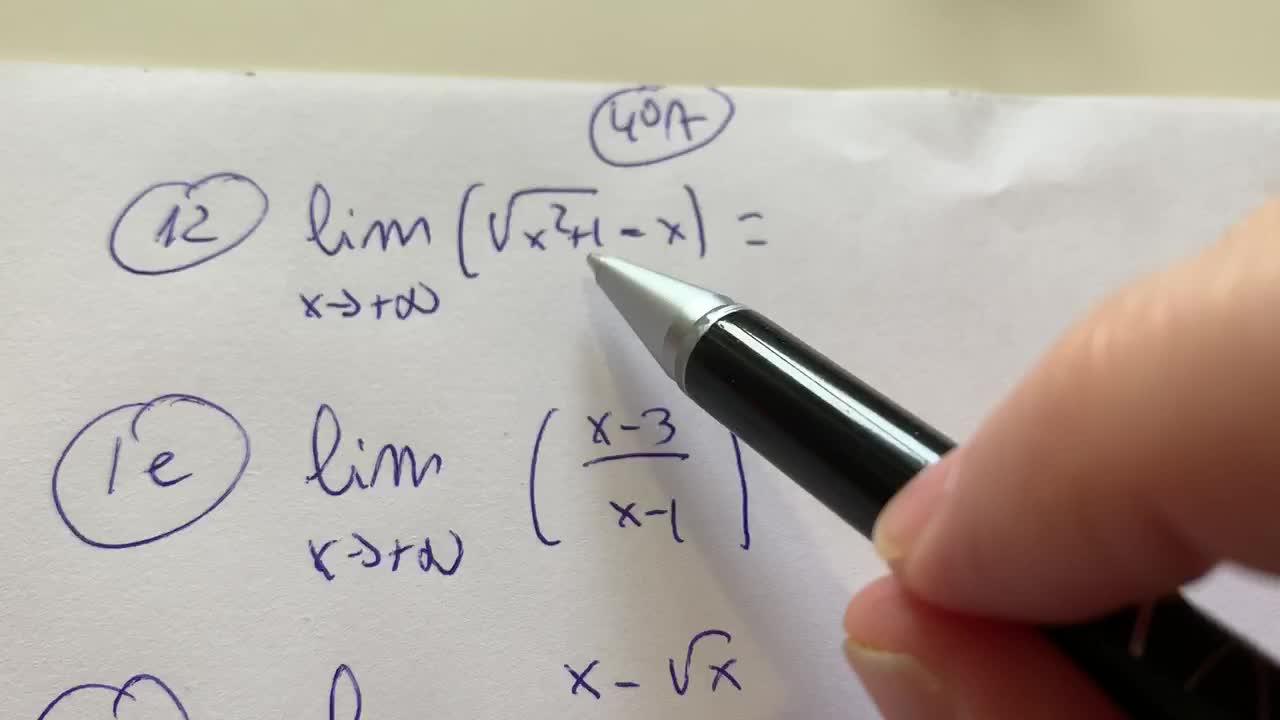 40A
12 lim (√x²+1 - x) =
x→+∞
1e lim (x-3
x-1)
x→+∞
x - √x